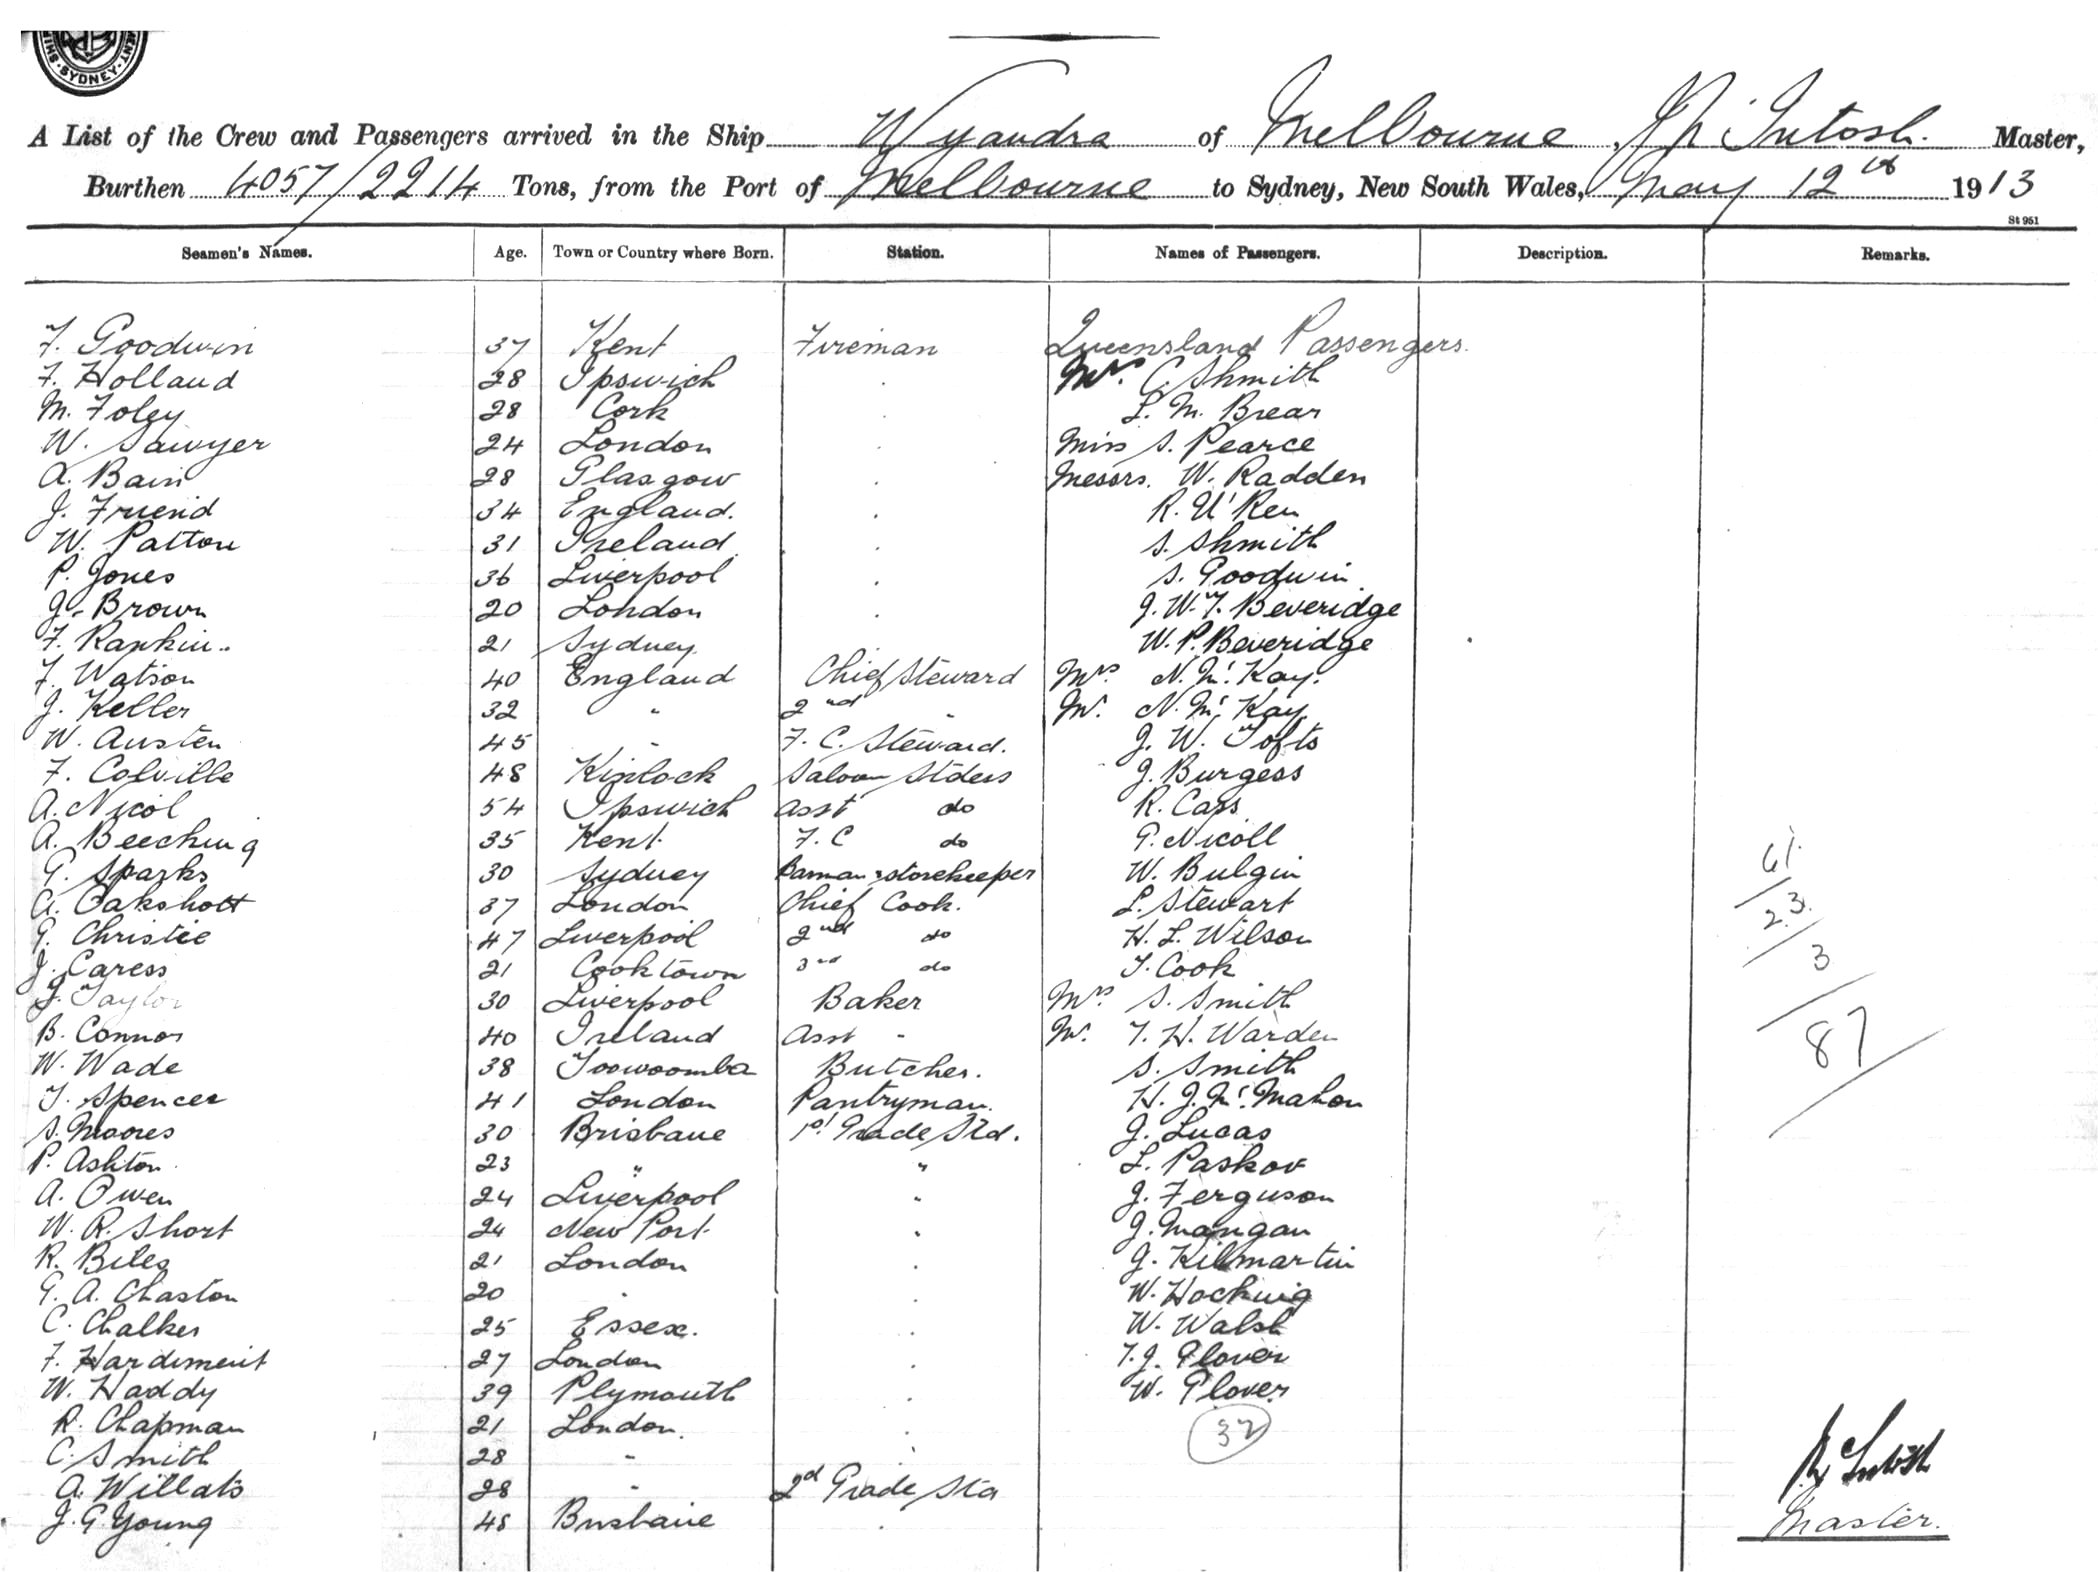 MENT · SYDNEY · SHIP
A List of the Crew and Passengers arrived in the Ship Wyandra of Melbourne, McIntosh. Master,
Burthen 4057/2214 Tons, from the Port of Melbourne to Sydney, New South Wales, May 12th 1913
St 951
Seamen's Names. Age. Town or Country where Born. Station. Names of Passengers. Description. Remarks.
F. Goodwin 37 Kent Fireman Queensland Passengers.
F. Holland 28 Ipswich . Mrs. C. Shmith
M. Foley 28 Cork . L. M. Brear
W. Sawyer 24 London . Miss S. Pearce
A. Bain 28 Glasgow . Messrs. W. Radden
J. Friend 34 England. . R. U'Ren
W. Patton 31 Ireland . S. Shmith
P. Jones 36 Liverpool . S. Goodwin
J. Brown 20 London . J. W. F. Beveridge
F. Rankin 21 Sydney . W. P. Beveridge
F. Watson 40 England Chief Steward Mrs. N. McKay.
J. Keller 32 " 2nd " Mr. N. McKay
W. Austen 45 " F. C. Steward. J. W. Tofts
F. Colville 48 Kinlock Saloon Stdess J. Burgess
A. Nicol 54 Ipswich Asst do R. Cass
A. Beeching 35 Kent F. C do G. Nicoll
G. Sparks 30 Sydney Baman & storekeeper W. Bulgin
61.
A. Oakshott 37 London Chief Cook. L. Stewart
23.
G. Christie 47 Liverpool 2nd do H. L. Wilson
J. Caress 21 Cooktown 3rd do T. Cook
3
J. Taylor 30 Liverpool Baker Mrs. S. Smith
B. Connor 40 Ireland Asst " Mr. T. H. Warden
87
W. Wade 38 Toowoomba Butcher. S. Smith
T. Spencer 41 London Pantryman. H. J. McMahon
S. Moores 30 Brisbane 1st Grade Std. J. Lucas
P. Ashton 23 " " L. Paskov
A. Owen 24 Liverpool " J. Ferguson
W. R. Short 24 New Port . J. Mangan
R. Biles 21 London . J. Kilmartin
G. A. Chaston 20 . . W. Hocking
C. Chalker 25 Essex. . W. Walsh
F. Hardiment 27 London . T. J. Glover
W. Haddy 39 Plymouth . W. Glover
R. Chapman 21 London. . 32
C. Smith 28 " .
A. Willats 28 " 2d Grade Std
McIntosh
J. G. Young 48 Brisbane .
Master.